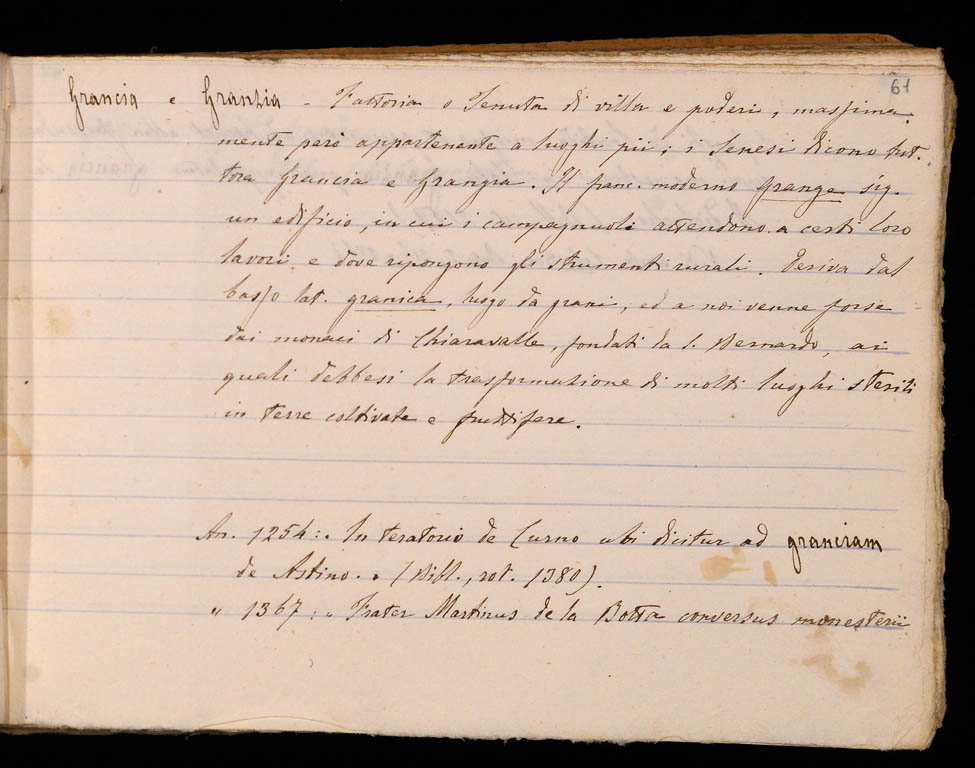 61
Grancia e Granzia - Fattoria o Tenuta di villa e poderi, massima-
mente però appartenente a luoghi pii; i Senesi dicono tut-
tora Grancia e Grangia. Il franc. moderno grange sig.
un edificio, in cui i campagnuoli attendono a certi loro
lavori e dove ripongono gli strumenti rurali. Deriva dal
basso lat. granica, luogo da grani, ed a noi venne forse
dai monaci di Chiaravalle, fondati da S. Bernardo, ai
quali debbesi la trasformazione di molti luoghi sterili
in terre coltivate e fruttifere.
An. 1254: „ In teratorio de Curno ubi dicitur ad granciam
de Astino. „ (Bibl., rot. 1380).
„ 1367: „ Frater Martinus de la Botta conversus monesterii